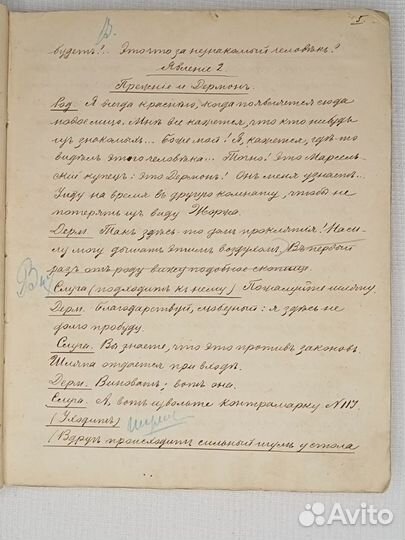 5.
будетъ!.. Это что за незнакомый человѣкъ?
Явленіе 2.
Прежніе и Дермонъ.
Род. Я всегда краснѣю, когда появляется сюда
новое лицо. Мнѣ все кажется, что кто нибудь
изъ знакомыхъ... Боже мой! Я, кажется, гдѣ-то
видѣлъ этого человѣка... Точно! Это Марсель-
скій купецъ: это Дермонъ! Онъ меня узнаетъ.
Уйду на время въ другую комнату, чтобы не
потерять изъ виду Жоржа.
Дерм. Такъ здѣсь-то домъ проклятія! На си-
лу могу дышать этимъ воздухомъ. Въ первый
разъ отъ роду вижу подобное скопище.
Слуга (подходитъ къ нему) Пожалуйте шляпу.
Дерм. Благодарствуй, любезный: я здѣсь не
долго пробуду.
Слуга. Вы знаете, что это противъ законовъ.
Шляпа отдается при входѣ.
Дерм. Виноватъ; вотъ она.
Слуга. А вотъ извольте контрамарку N 117.
(Уходитъ)
(Вдругъ происходитъ сильный шумъ у стола
Avito